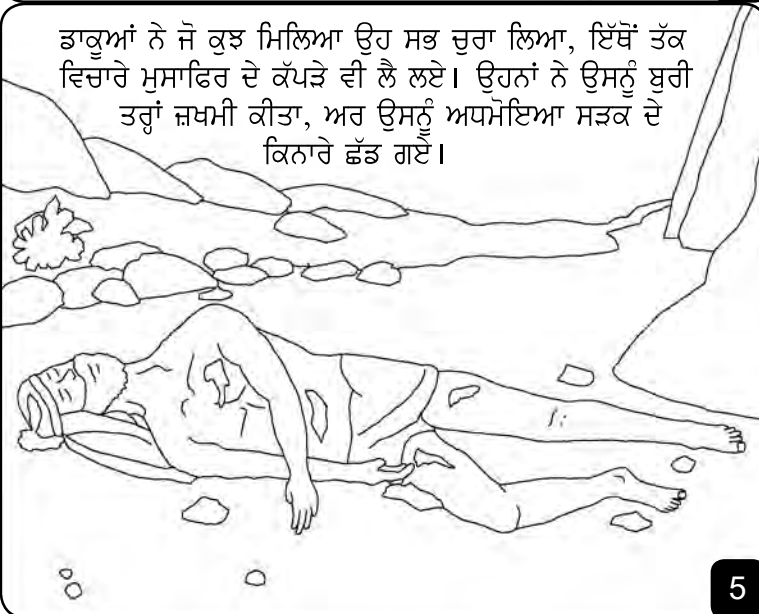 ਡਾਕੂਆਂ ਨੇ ਜੋ ਕੁਝ ਮਿਲਿਆ ਉਹ ਸਭ ਚੁਰਾ ਲਿਆ, ਇੱਥੋਂ ਤੱਕ
ਵਿਚਾਰੇ ਮੁਸਾਫਿਰ ਦੇ ਕੱਪੜੇ ਵੀ ਲੈ ਲਏ। ਉਹਨਾਂ ਨੇ ਉਸਨੂੰ ਬੁਰੀ
ਤਰ੍ਹਾਂ ਜ਼ਖਮੀ ਕੀਤਾ, ਅਰ ਉਸਨੂੰ ਅਧਮੋਇਆ ਸੜਕ ਦੇ
ਕਿਨਾਰੇ ਛੱਡ ਗਏ।
5